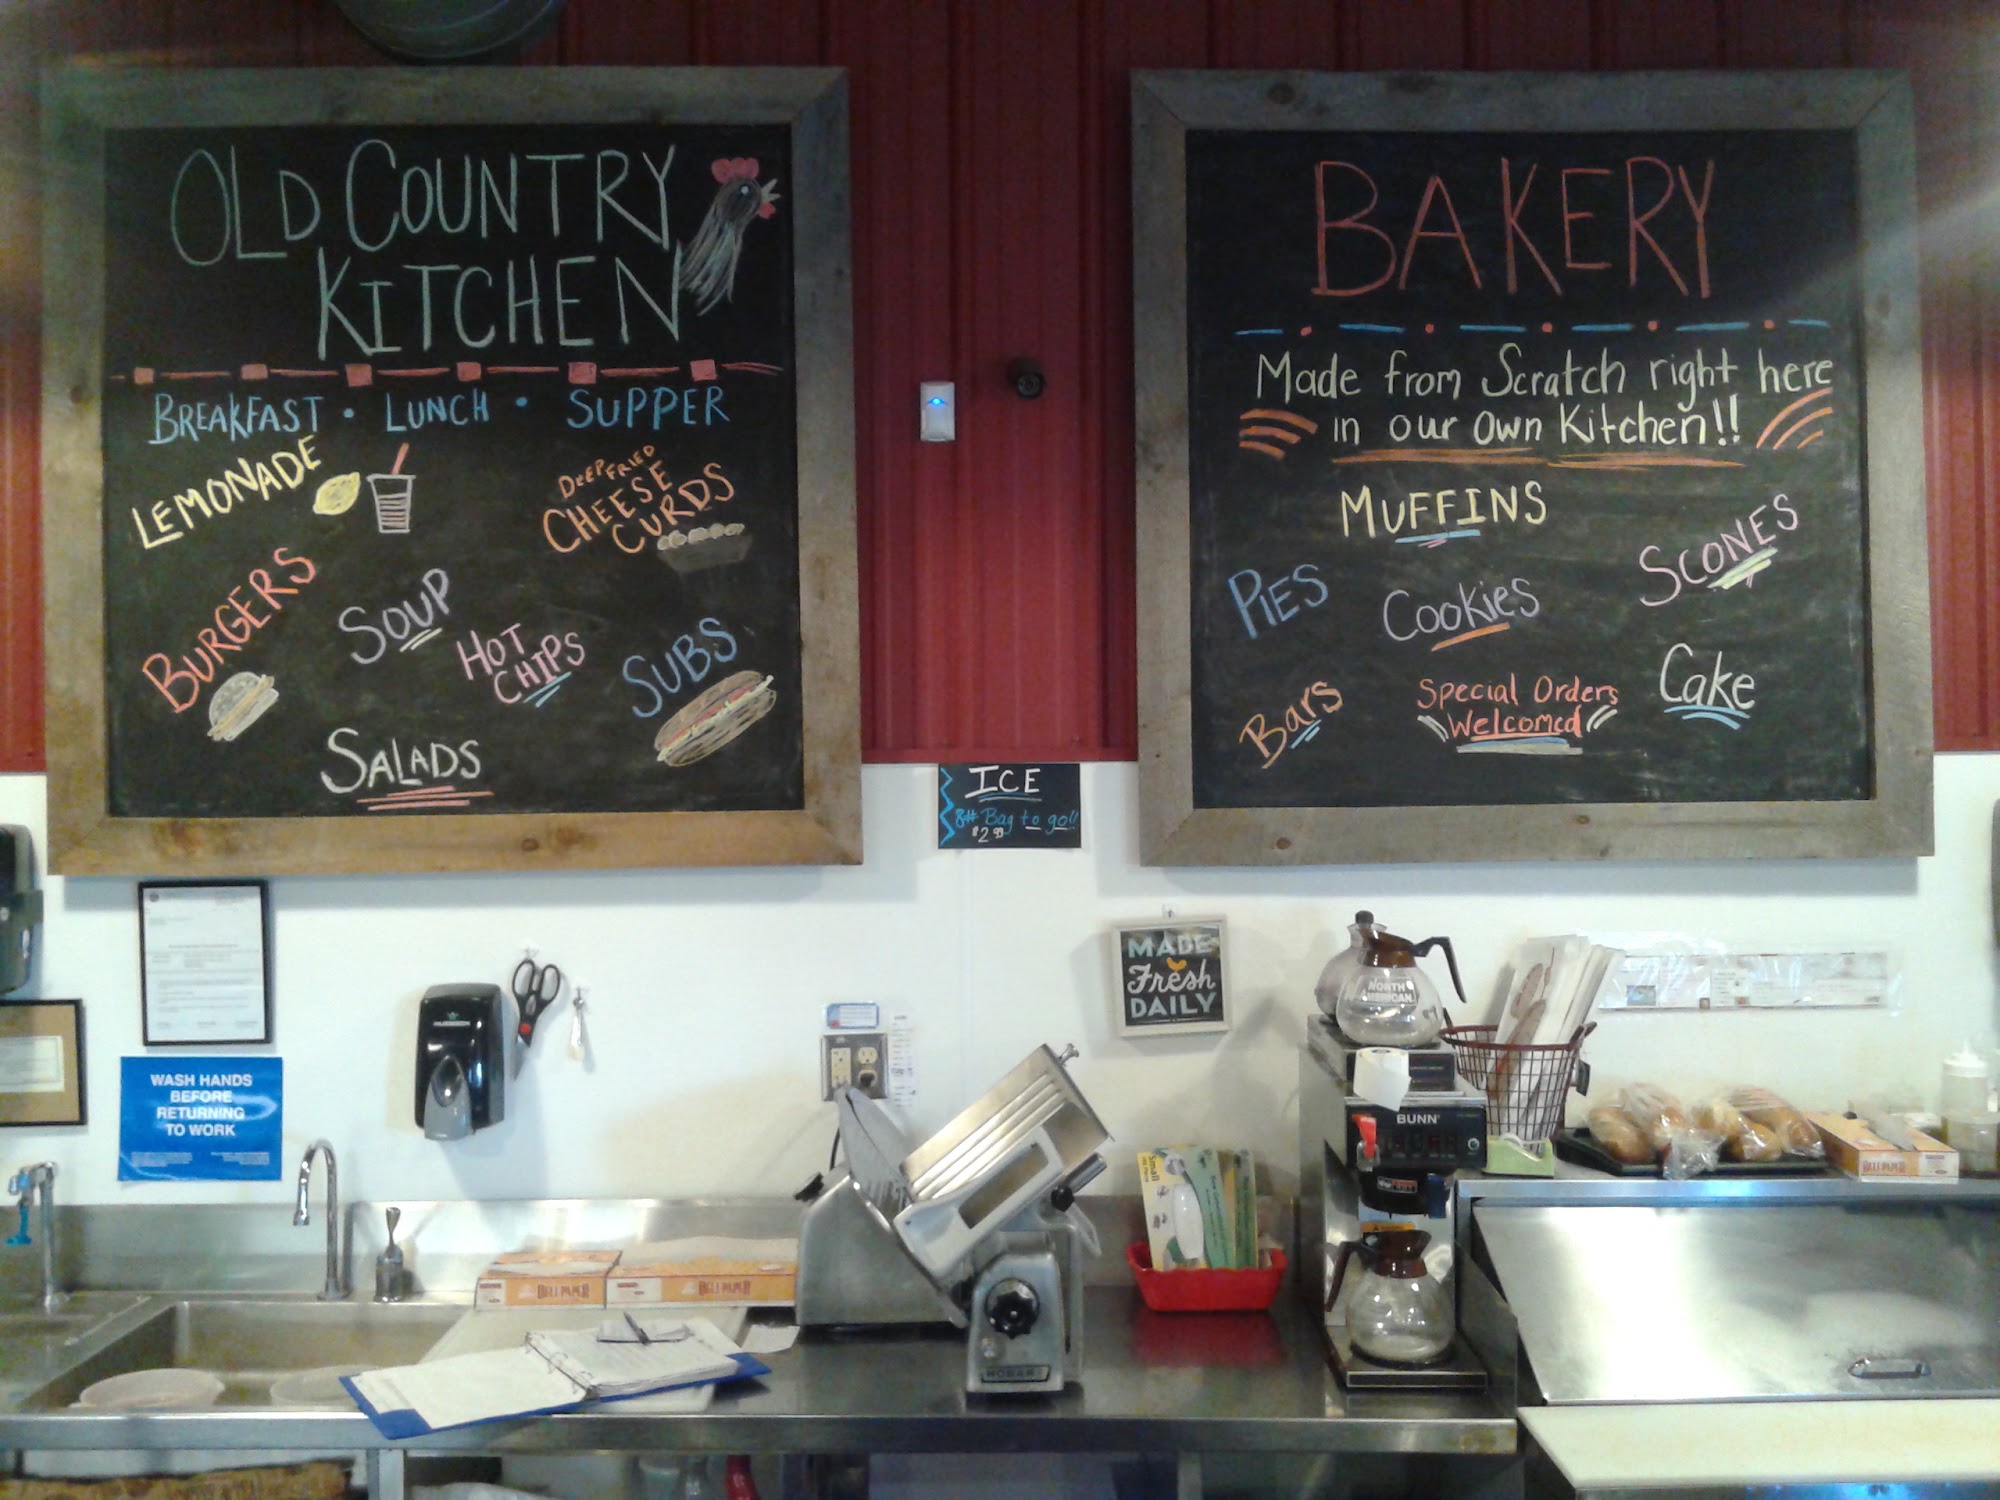 OLD COUNTRY
KITCHEN
BREAKFAST • LUNCH • SUPPER
LEMONADE
DEEP FRIED
CHEESE
CURDS
BURGERS
SOUP
HOT
CHIPS
SUBS
SALADS
BAKERY
Made from Scratch right here
in our own Kitchen!!
MUFFINS
PIES
Cookies
SCONES
Bars
Special Orders
Welcomed
Cake
ICE
8# Bag to go!!
$2.99
MADE
Fresh
DAILY
WASH HANDS
BEFORE
RETURNING
TO WORK
NORTH
AMERICAN
BUNN
Small
DELI PAPER
DELI PAPER
DELI PAPER
HOBART